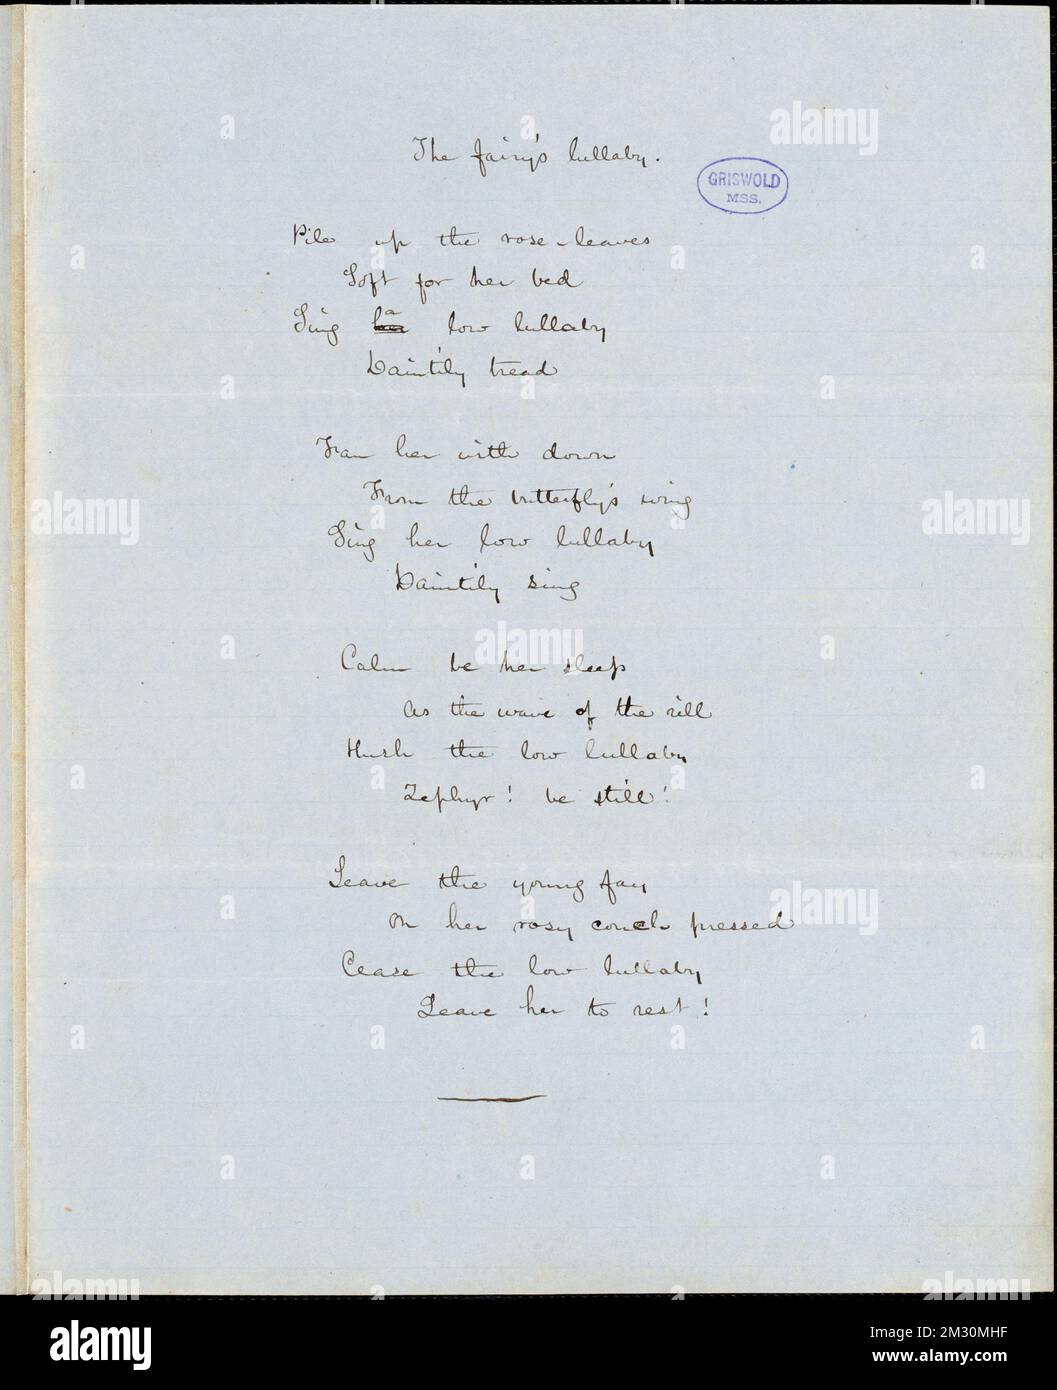 The fairy's lullaby.
GRISWOLD
MSS.
Pile up the rose-leaves
Soft for her bed
Sing a her low lullaby
Daintily tread
Fan her with down
From the butterfly's wing
Sing her low lullaby
Daintily sing
Calm be her sleep
As the wave of the rill
Hush the low lullaby
Zephyr! be still!
Leave the young fay
On her rosy couch pressed
Cease the low lullaby
Leave her to rest!
alamy
Image ID: 2M30MHF
www.alamy.com